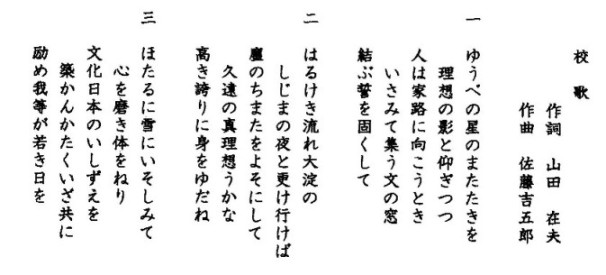 校歌
作詞 山田 在夫
作曲 佐藤吉五郎
一 ゆうべの星のまたたきを
理想の影と仰ぎつつ
人は家路に向こうとき
いさみて集う文の窓
結ぶ誓を固くして
二 はるけき流れ大淀の
しじまの夜と更け行けば
塵のちまたをよそにして
久遠の真理想うかな
高き誇りに身をゆだね
三 ほたるに雪にいそしみて
心を磨き体をねり
文化日本のいしずえを
築かんかたくいざ共に
励め我等が若き日を